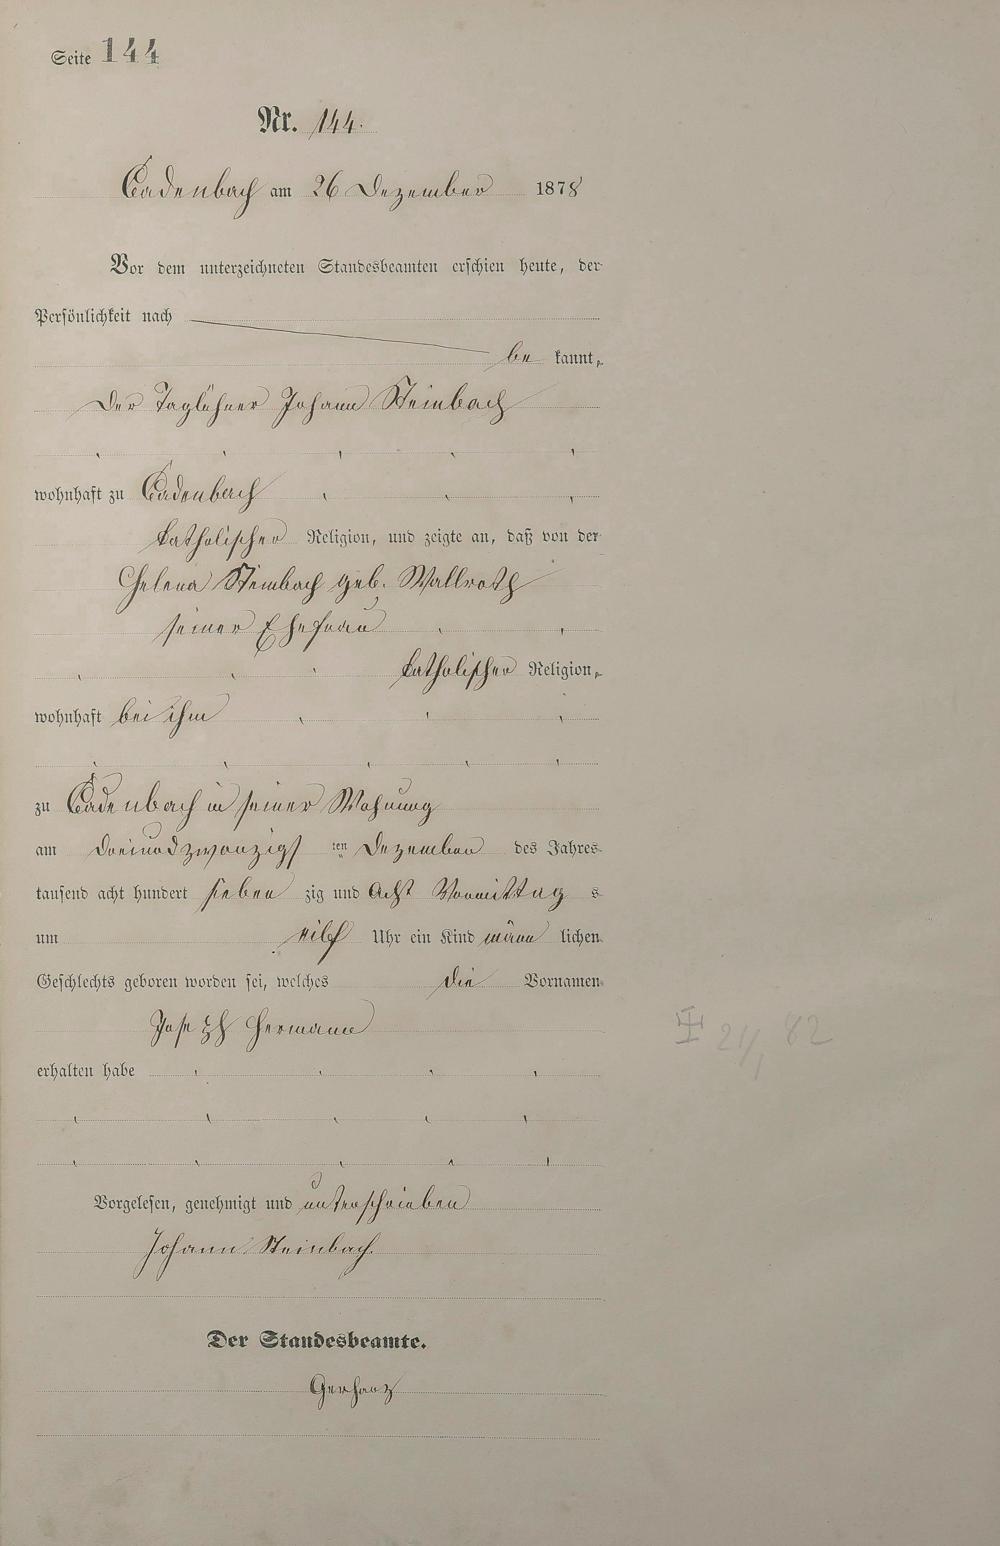 Seite 144
Nr. 144.
Cadenbach am 26 Dezember 1878
Vor dem unterzeichneten Standesbeamten erschien heute, der
Persönlichkeit nach
be kannt,
Der Taglöhner Johann Steinbach
wohnhaft zu Cadenbach
katholischer Religion, und zeigte an, daß von der
Helena Steinbach geb. Wallroth
seiner Ehefrau
katholischer Religion,
wohnhaft bei ihm
zu Cadenbach in seiner Wohnung
am dreiundzwanzigs ten Dezember des Jahres
tausend acht hundert sieben zig und Acht Vormittag s
um eilf Uhr ein Kind männ lichen
Geschlechts geboren worden sei, welches die Vornamen
Joseph Hermann
erhalten habe
Vorgelesen, genehmigt und unterschrieben
Johann Steinbach.
Der Standesbeamte.
Gerharz